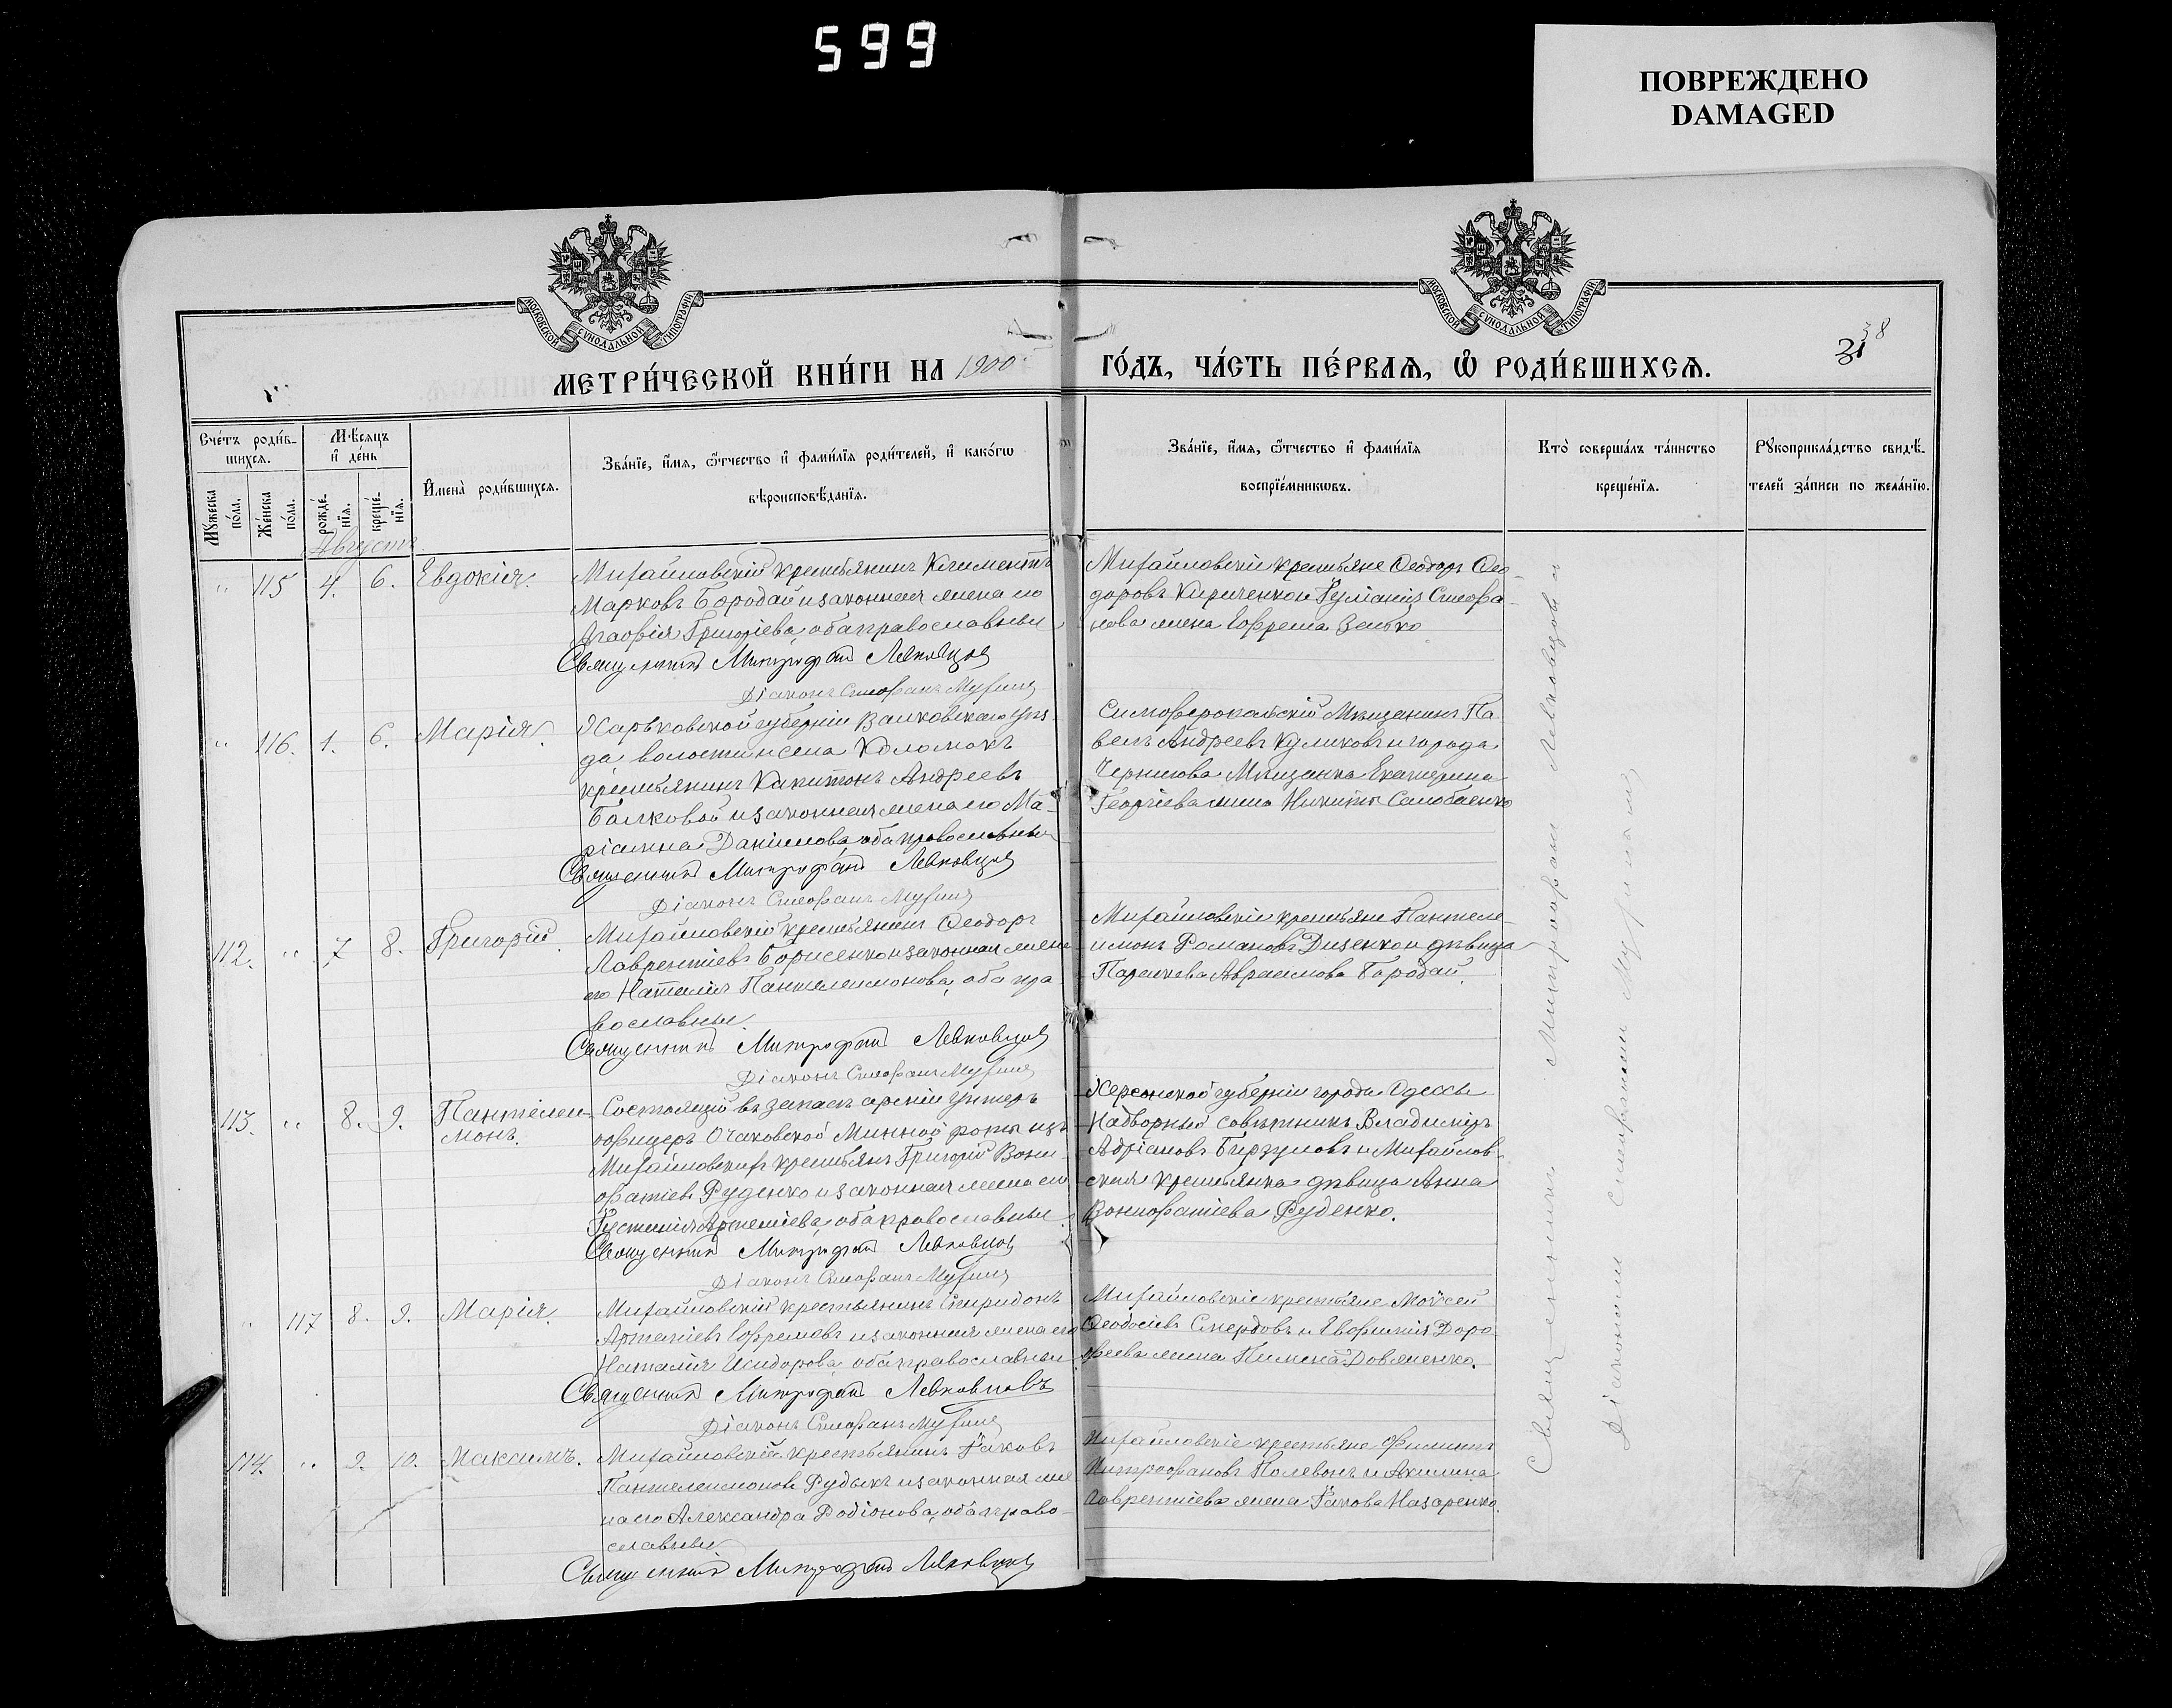 599
ПОВРЕЖДЕНО
DAMAGED
МОСКОВСКОЙ СѴНОДАЛЬНОЙ ТИПОГРАФІИ
МОСКОВСКОЙ СѴНОДАЛЬНОЙ ТИПОГРАФІИ
МЕТРИ́ЧЕСКОЙ КНИ́ГИ НА 1900
ГО́ДЪ, ЧА́СТЬ ПЕ́РВАѦ, Ѡ҆ РОДИ́ВШИХСѦ.
31 38
Сче́тъ роди́в-
шихсѧ.
Мѣ́сяцъ
и҆ де́нь
Мꙋ́жеска
по́ла.
Же́нска
по́ла.
рожде́-
нїѧ.
креще́-
нїѧ.
И҆мена̀ роди́вшихсѧ.
Зва́нїе, и҆́мѧ, ѻ҆́тчество и҆ фами́лїѧ роди́телей, и҆ како́гѡ
вѣроисповѣ́данїѧ.
Зва́нїе, и҆́мѧ, ѻ҆́тчество и҆ фами́лїѧ
воспрїе́мникѡвъ.
Кто̀ соверша́лъ та́инство
креще́нїѧ.
Рꙋкоприкла́дство свидѣ́-
телей за́писи по жела́нїю.
Августъ
" 115 4. 6. Евдокія.
Михайловскій крестьянинъ Климентъ
Марковъ Бородай и законная жена его
Агафія Григоріева, оба православные
Священникъ Митрофанъ Левковцовъ
Діаконъ Стефанъ
Михайловскіе крестьяне Ѳеодоръ Ѳео-
доровъ Кириченко и Іуліанія Стефа-
нова жена Ефрема Зенько
" 116. 1. 6. Марія.
Харьковской губерніи Валковскаго уѣз-
да волости и села Коломакъ
крестьянинъ Капитонъ Андреевъ
Балковой и законная жена его Ма-
ріанна Даніилова, оба православные
Священникъ Митрофанъ Левковцовъ
Діаконъ Стефанъ
Симферопольскій Мѣщанинъ Па-
велъ Андреевъ Куликовъ и города
Чернигова Мѣщанка Екатерина
Георгіева жена Никиты
112. " 7 8. Григорій.
Михайловскій крестьянинъ Ѳеодоръ
Лаврентіевъ Борисенко и законная жена
его Наталія Пантелеимонова, оба пра-
вославные.
Священникъ Митрофанъ Левковцовъ
Діаконъ Стефанъ
Михайловскіе крестьяне Пантеле-
имонъ Романовъ Диденко и дѣвица
Параскева Авраамова Бородай.
113. " 8. 9. Пантелеи-
монъ.
Состоящій въ запасѣ арміи Унтеръ
офицеръ Очаковской Минной роты изъ
Михайловскихъ крестьянъ Григорій Вони-
фатіевъ Руденко и законная жена его
Іустинія Артеміева, оба православные.
Священникъ Митрофанъ Левковцовъ
Діаконъ Стефанъ
Херсонской губерніи города Одессы
Надворный совѣтникъ Владиміръ
Адріановъ и Михайлов-
ская крестьянка дѣвица Анна
Вонифатіева Руденко.
" 117 8. 9. Марія.
Михайловскій крестьянинъ Спиридонъ
Ефремовъ и законная жена его
Наталія Исидорова, оба православные.
Священникъ Митрофанъ Левковцовъ
Діаконъ Стефанъ
Михайловскіе крестьяне Моѵсей
Ѳеодосіевъ Смердовъ и Евфимія Доро-
феева жена Пимена
114. " 9. 10. Максимъ.
Михайловскій крестьянинъ Іаковъ
Пантелеимоновъ Рудыкъ и законная же-
на его Александра Родіонова, оба право-
славные
Священникъ Митрофанъ Левковцовъ
Михайловскіе крестьяне Филиппъ
Митрофановъ и Акилина
Лаврентіева жена Іакова Назаренко.
Священникъ Митрофанъ Левковцовъ и
Діакономъ Стефаномъ